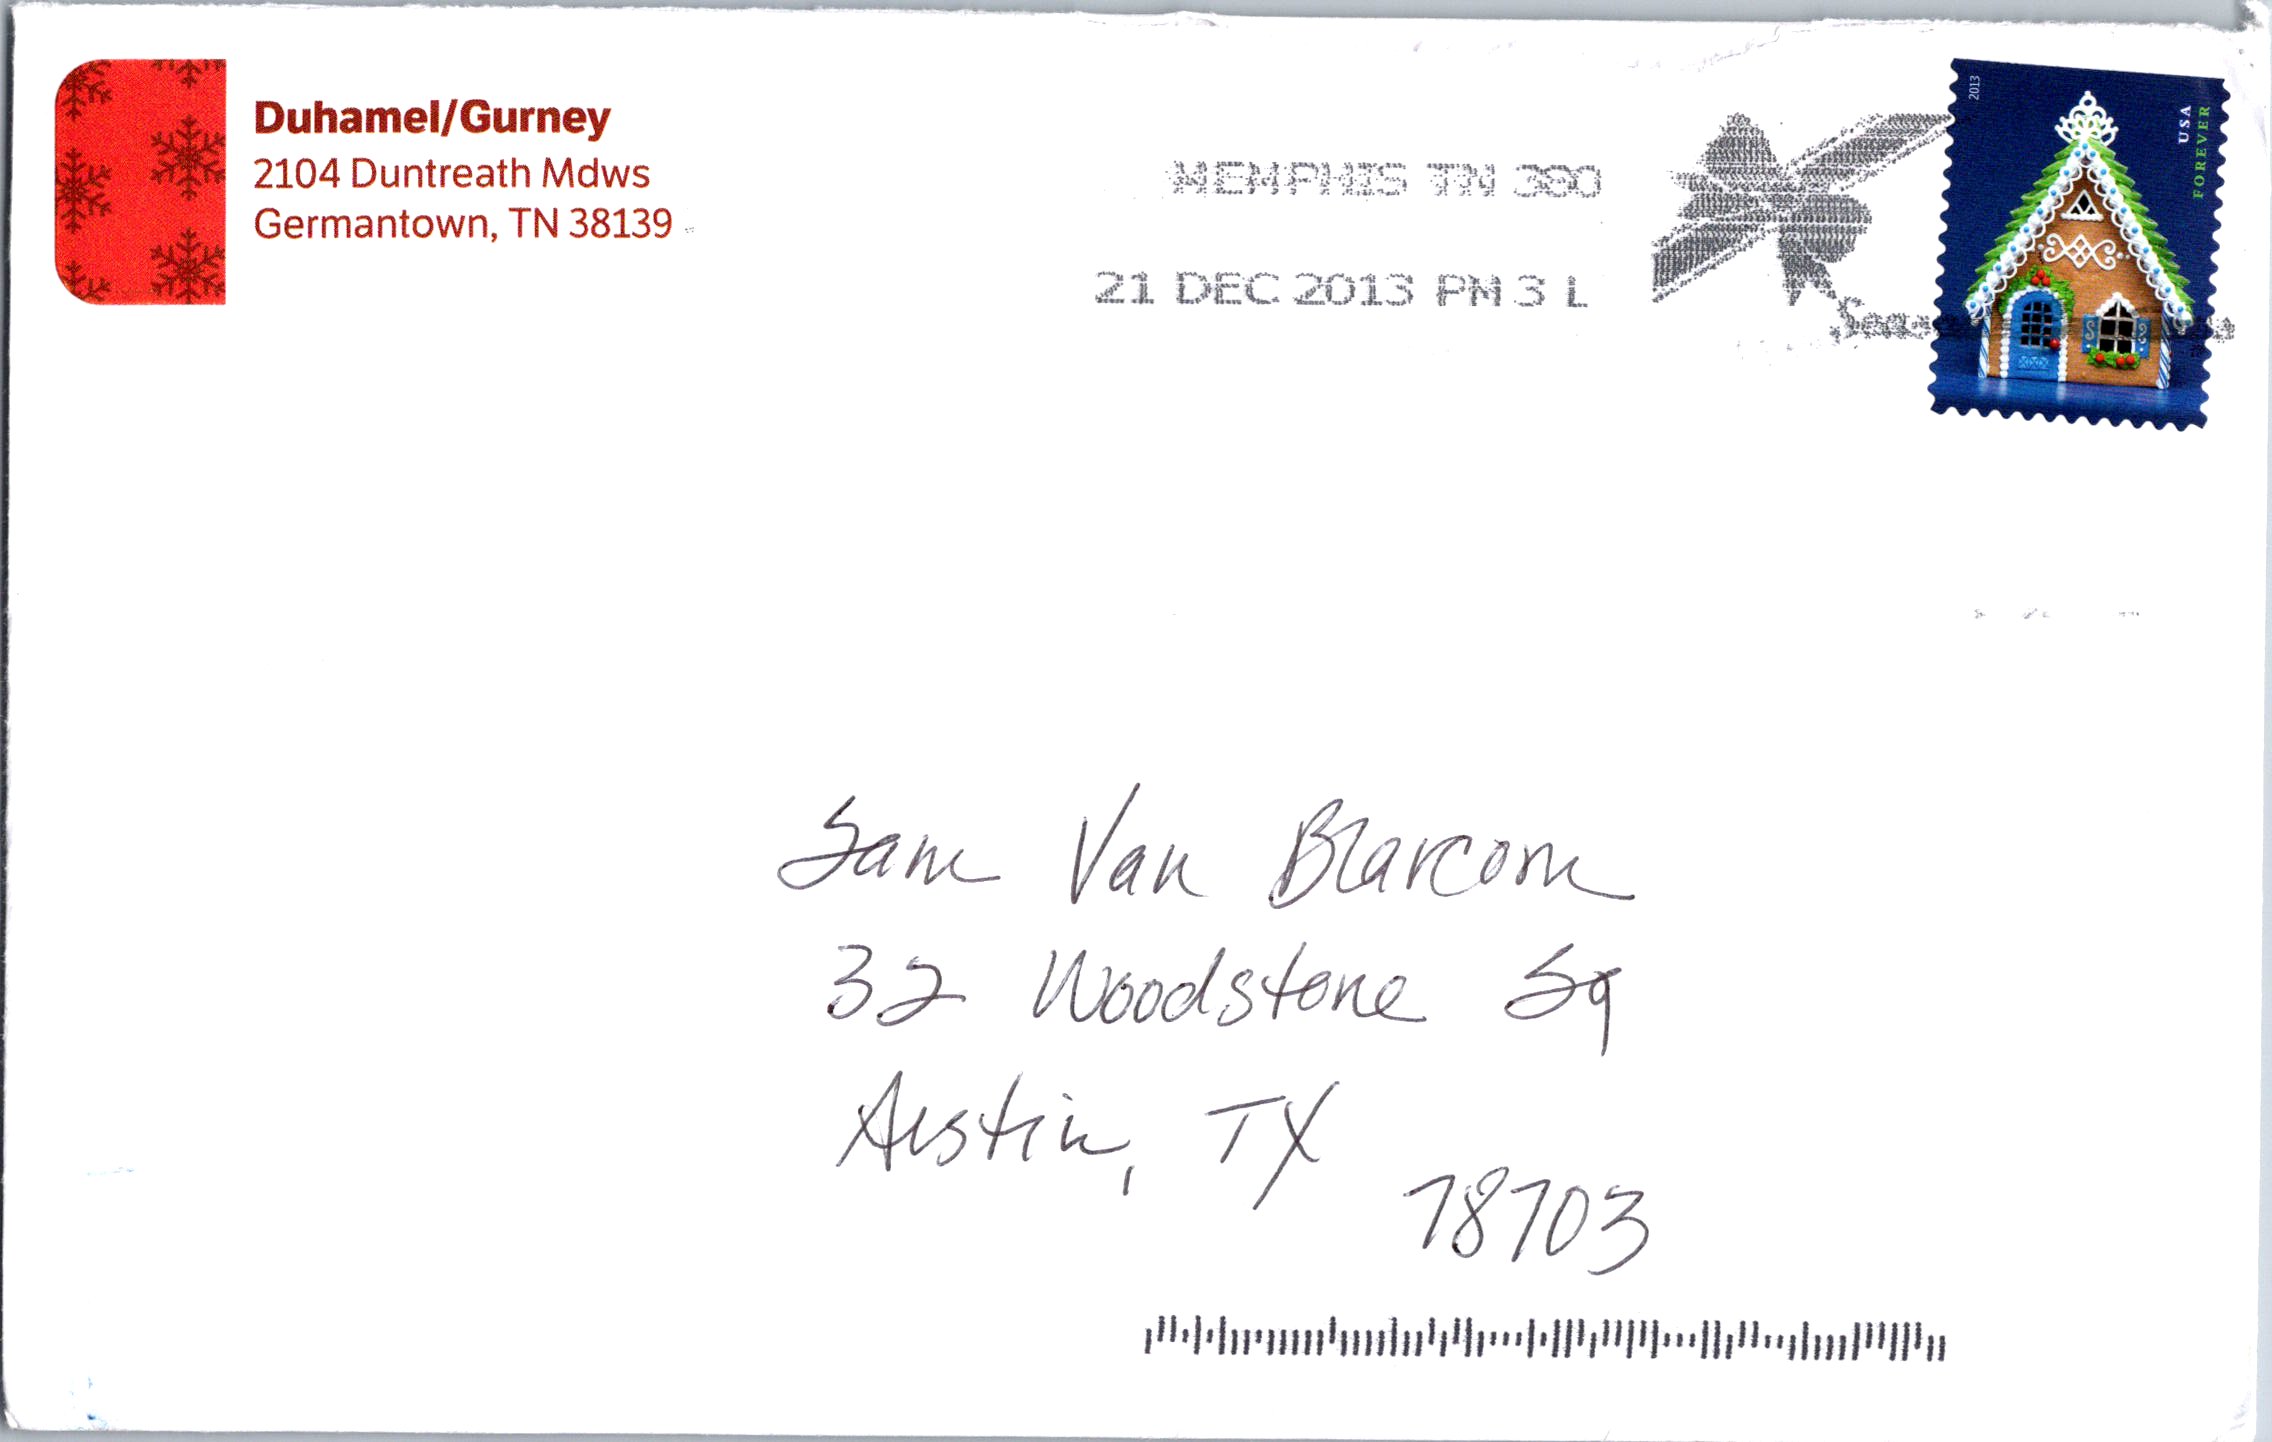 Duhamel/Gurney
2104 Duntreath Mdws
Germantown, TN 38139
MEMPHIS TN 380
21 DEC 2013 PM 3 L
2013
USA
FOREVER
Sam Van Blarcom
32 Woodstone Sq
Austin, TX
78703